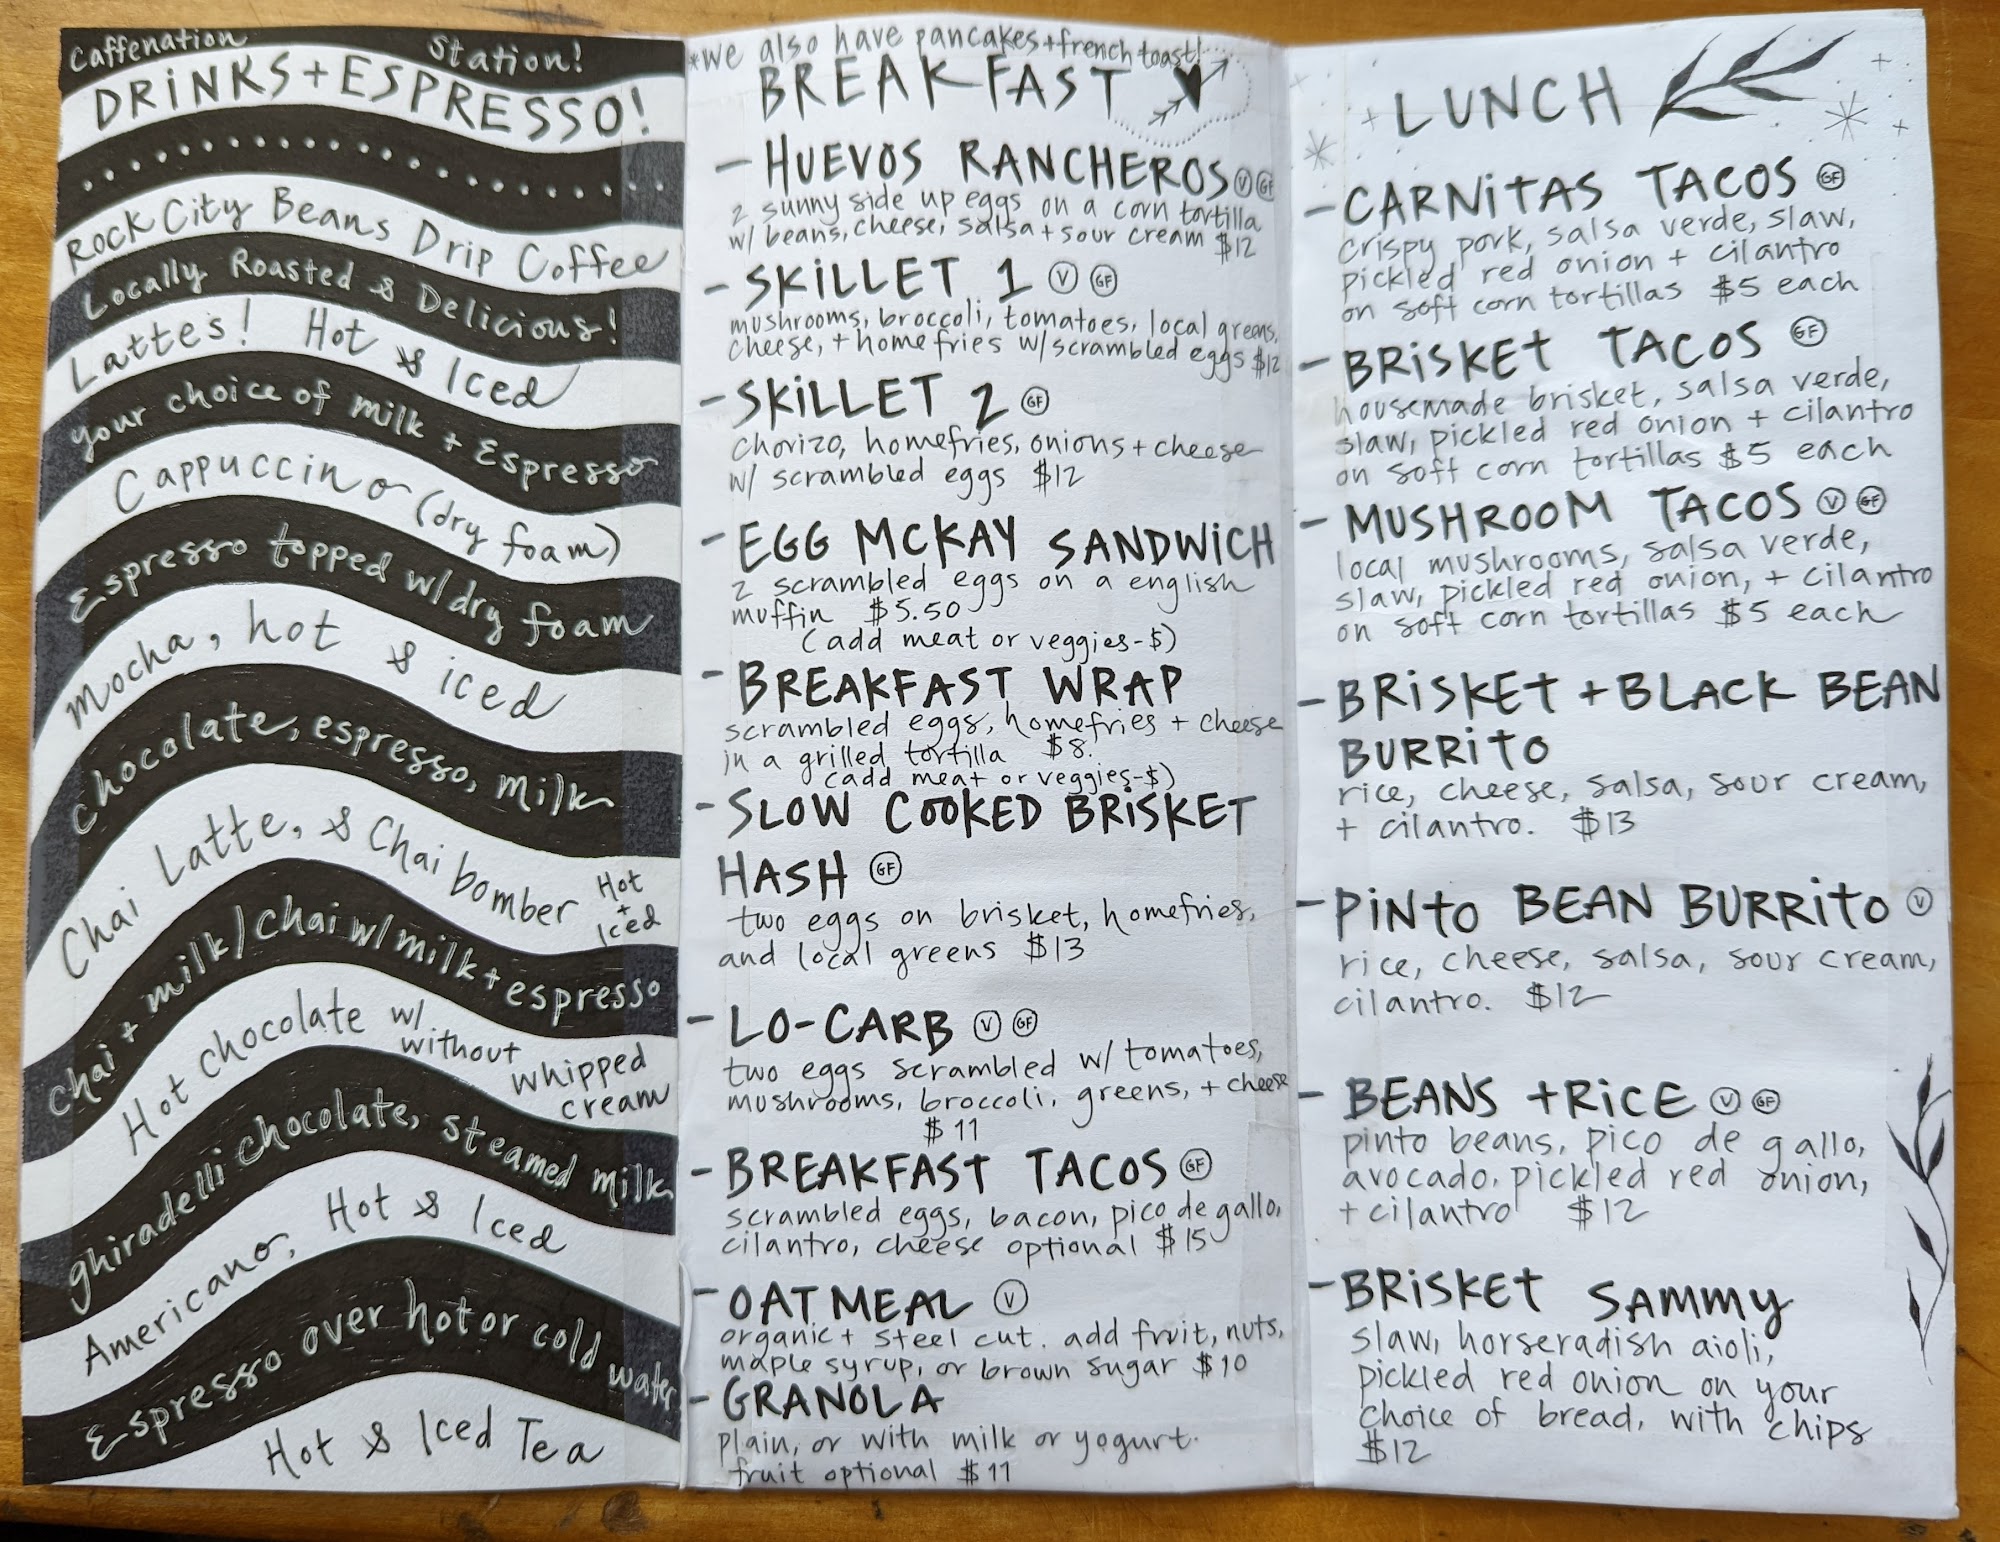 Caffenation Station!
DRINKS + ESPRESSO!
Rock City Beans Drip Coffee
Locally Roasted & Delicious!
Lattes! Hot & Iced
your choice of milk + Espresso
Cappuccino (dry foam)
Espresso topped w/ dry foam
Mocha, hot & iced
chocolate, espresso, milk
Chai Latte, & Chai bomber Hot + Iced
chai + milk / chai w/ milk + espresso
Hot chocolate w/ without whipped cream
ghiradelli chocolate, steamed milk
Americano, Hot & Iced
Espresso over hot or cold water
Hot & Iced Tea
*we also have pancakes + french toast!
BREAKFAST
- HUEVOS RANCHEROS V GF
2 sunny side up eggs on a corn tortilla
w/ beans, cheese, salsa + sour cream $12
- SKILLET 1 V GF
mushrooms, broccoli, tomatoes, local greens,
cheese, + homefries w/ scrambled eggs $12
- SKILLET 2 GF
chorizo, homefries, onions + cheese
w/ scrambled eggs $12
- EGG MCKAY SANDWICH
2 scrambled eggs on a english
muffin $5.50
(add meat or veggies-$)
- BREAKFAST WRAP
scrambled eggs, homefries + cheese
in a grilled tortilla $8.
(add meat or veggies-$)
- SLOW COOKED BRISKET
HASH GF
two eggs on brisket, homefries,
and local greens $13
- LO-CARB V GF
two eggs scrambled w/ tomatoes,
mushrooms, broccoli, greens, + cheese
$11
- BREAKFAST TACOS GF
scrambled eggs, bacon, pico de gallo,
cilantro, cheese optional $15
- OATMEAL V
organic + steel cut. add fruit, nuts,
maple syrup, or brown sugar $10
- GRANOLA
plain, or with milk or yogurt.
fruit optional $11
LUNCH
- CARNITAS TACOS GF
crispy pork, salsa verde, slaw,
pickled red onion + cilantro
on soft corn tortillas $5 each
- BRISKET TACOS GF
housemade brisket, salsa verde,
slaw, pickled red onion + cilantro
on soft corn tortillas $5 each
- MUSHROOM TACOS V GF
local mushrooms, salsa verde,
slaw, pickled red onion, + cilantro
on soft corn tortillas $5 each
- BRISKET + BLACK BEAN
BURRITO
rice, cheese, salsa, sour cream,
+ cilantro. $13
- PINTO BEAN BURRITO V
rice, cheese, salsa, sour cream,
cilantro. $12
- BEANS + RICE V GF
pinto beans, pico de gallo,
avocado, pickled red onion,
+ cilantro $12
- BRISKET SAMMY
slaw, horseradish aioli,
pickled red onion on your
choice of bread, with chips
$12